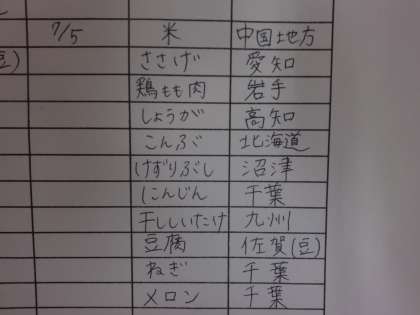 7/5 米 中国地方
豆) ささげ 愛知
鶏もも肉 岩手
しょうが 高知
こんぶ 北海道
けずりぶし 沼津
にんじん 千葉
干ししいたけ 九州
豆腐 佐賀(豆)
ねぎ 千葉
メロン 千葉